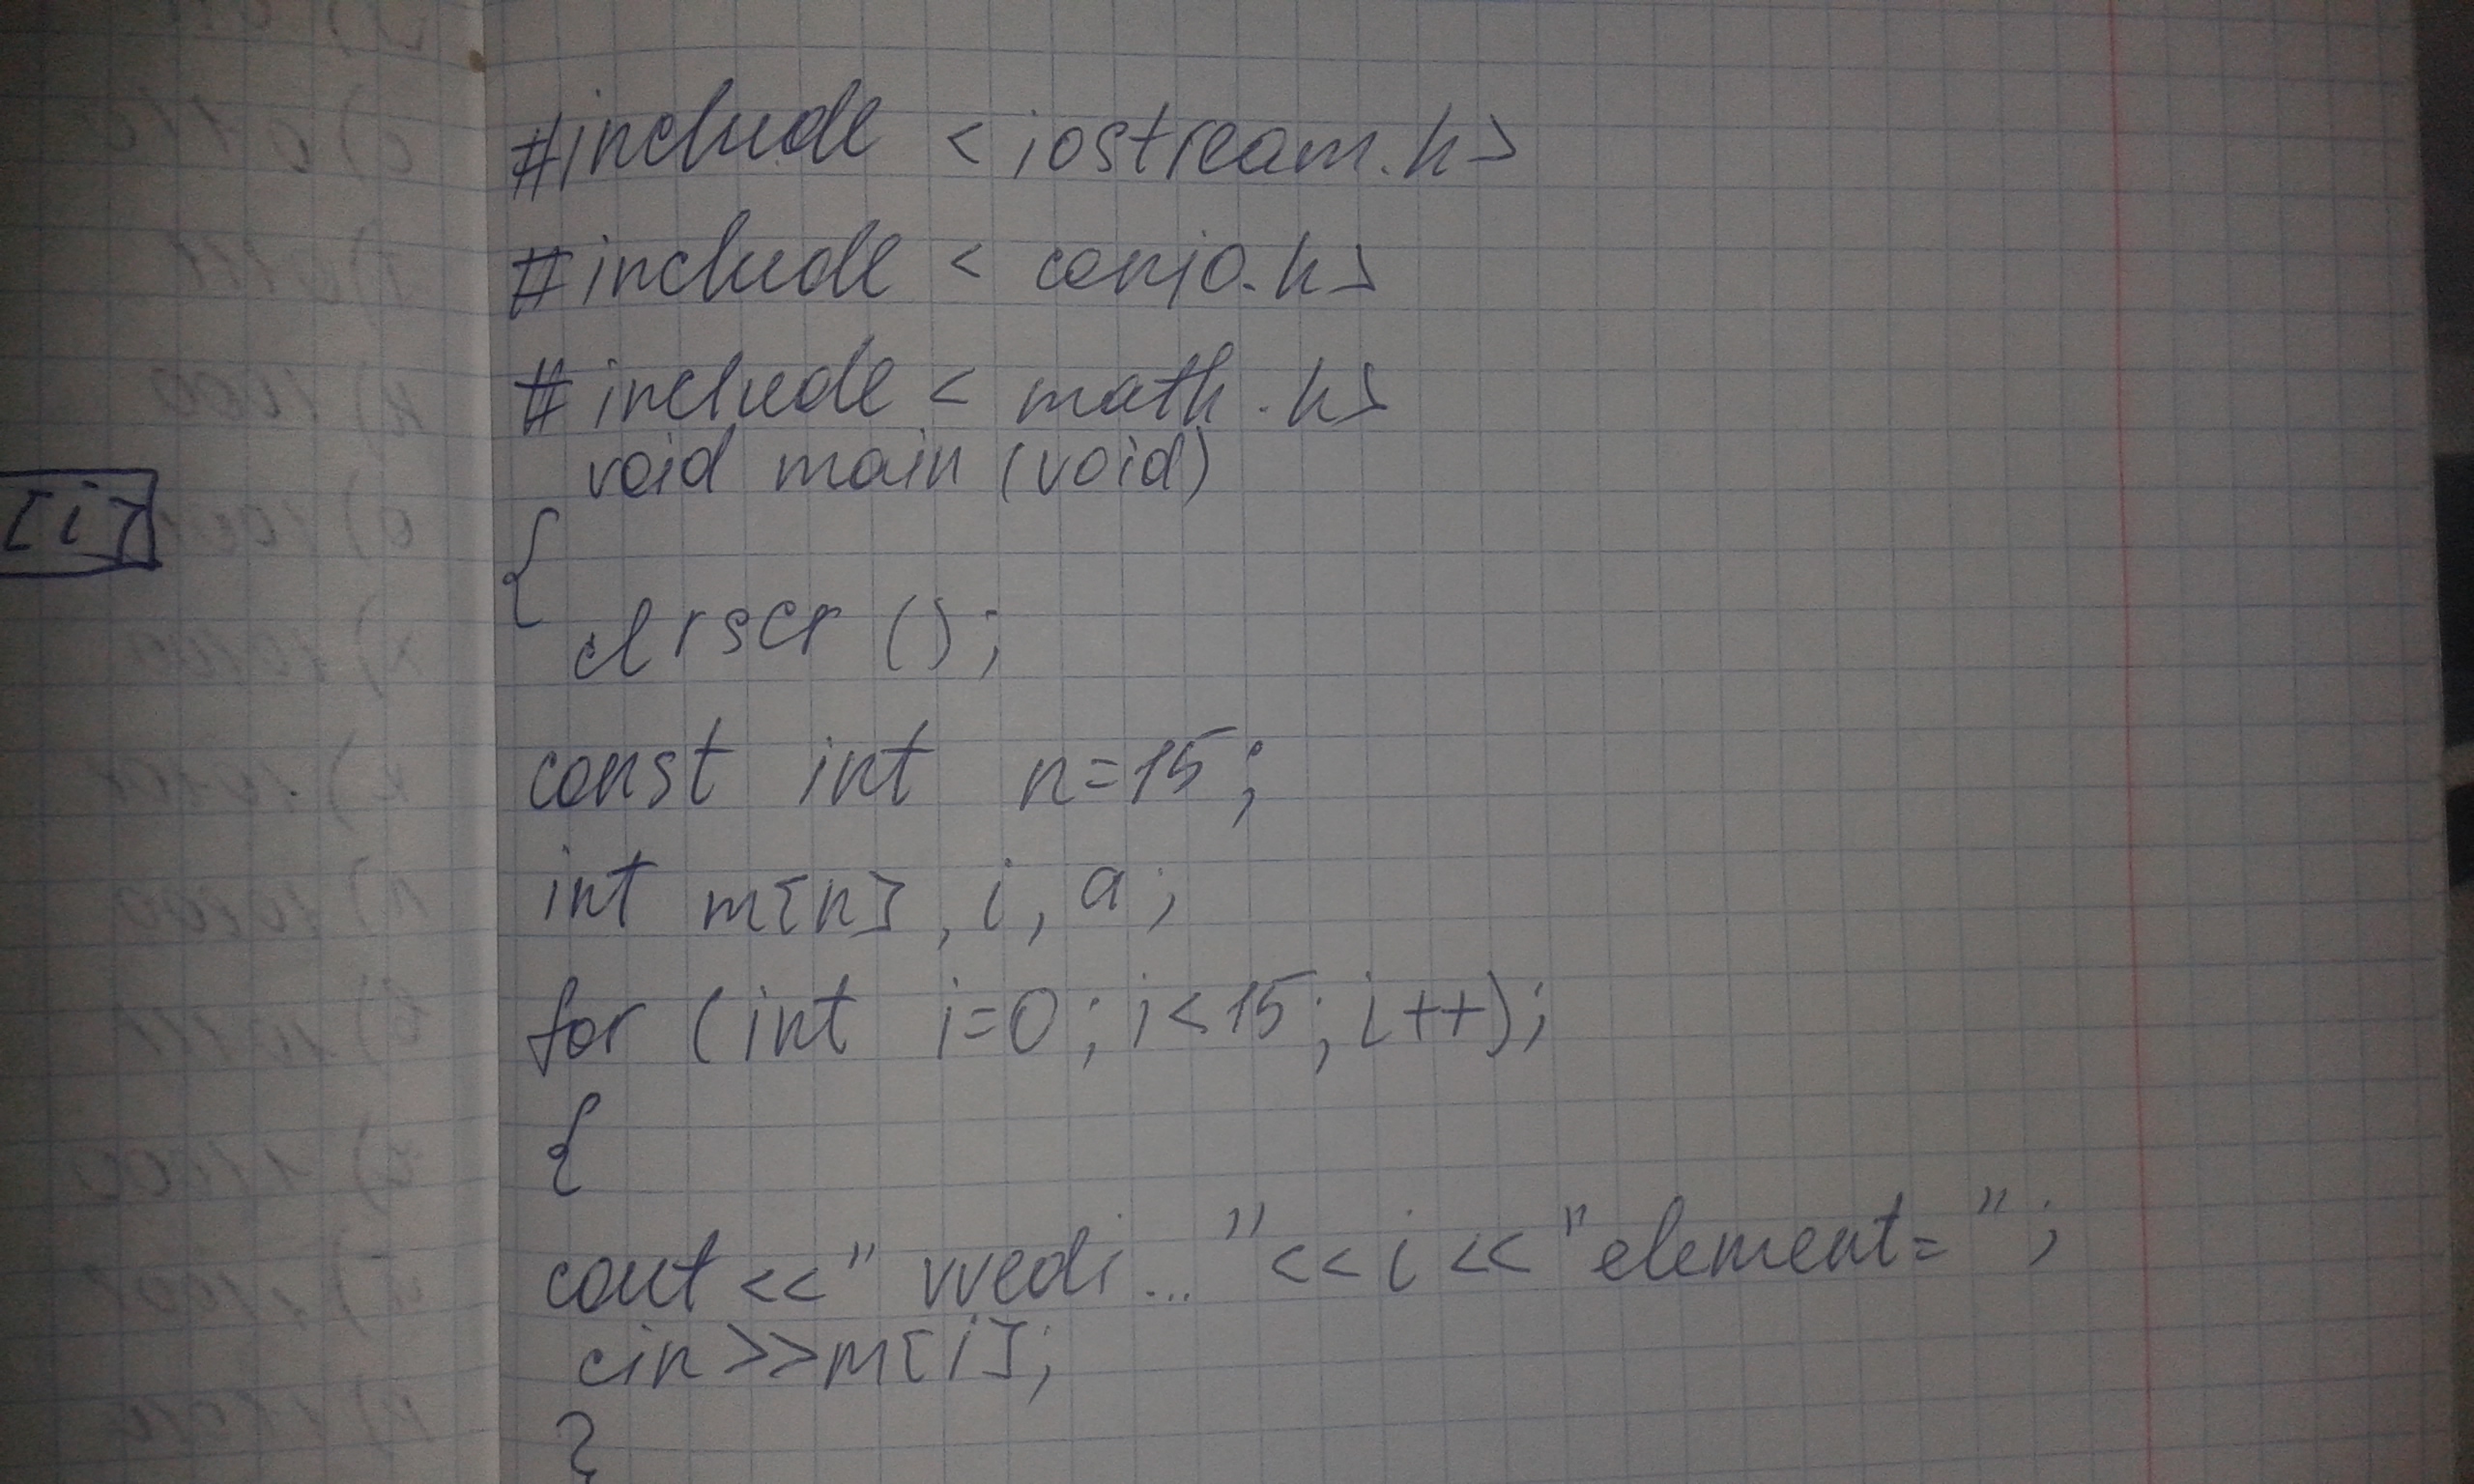 #include <iostream.h>
#include < conio.h>
# include < math.h>
void main (void)
{
clrscr ();
const int n=15;
int m[n], i, a;
for (int i=0; i<15; i++);
{
cout <<" vvedi... "<< i << "element= ";
cin >>m[i];
}
[i]